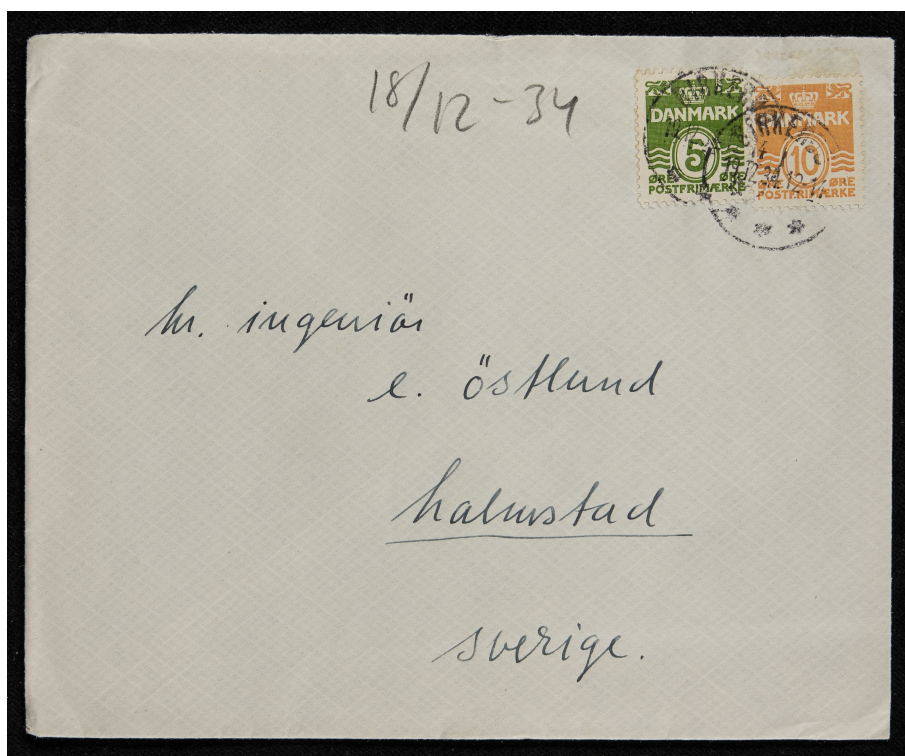 18/12-34
DANMARK
5
ØRE ØRE
POSTFRIMÆRKE
DANMARK
10
ØRE
POSTFRIMÆRKE
hr. ingeniör
e. östlund
halmstad
sverige.